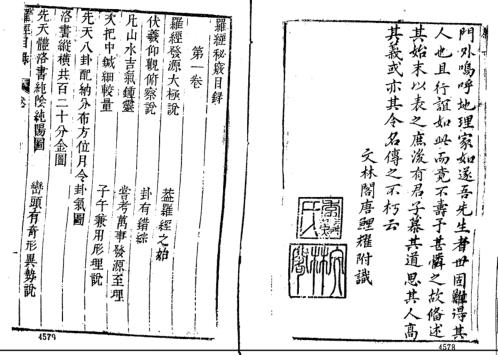 門外嗚呼地理家如遂吾先生者世固難得其
人也且行誼如此而竟不壽予甚憐之故備述
其始末以表之庶後有君子慕其道思其人高
其義或亦其令名傳之不朽云
文林閣唐鯉耀附識
4578
羅經秘竅目錄
第一卷
羅經發源太極說
葢羅經之始
伏羲仰觀俯察說
卦有錯綜
片山水吉氣鍾靈
嘗考萬事發源至理
次把中鍼細較量
子午兼用形理說
先天八卦配納分布方位月令卦氣圖
洛書縱横共百二十分金圖
先天體洛書純陰純陽圖
巒頭有奇形異勢說
4579